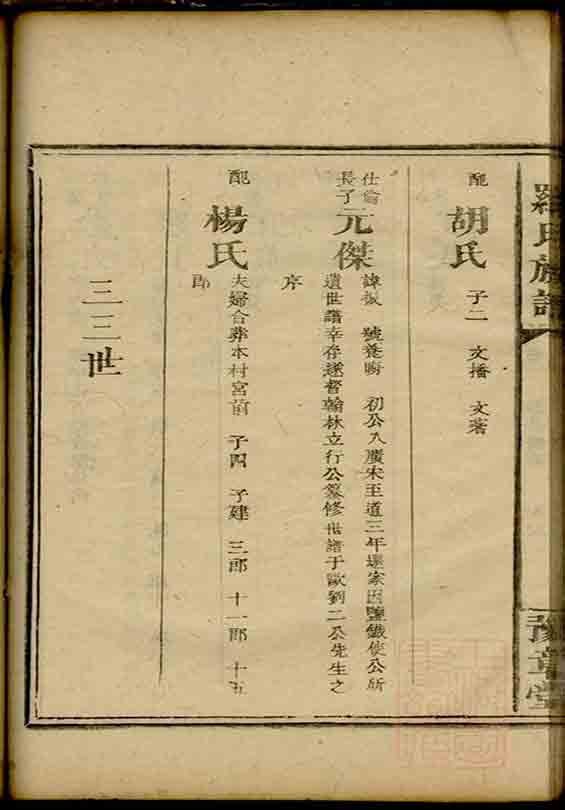 羅氏族譜
豫章堂
配 胡氏 子二 文播 文著
仕倫長子 元傑
諱振 號養晦 初公入廣宋至道三年還家因鹽鐵使公所
遺世譜幸存遂督翰林立行公纂修世譜于歐劉二公先生之
序
配 楊氏
夫婦合葬本村宮前 子四 子建 三郎 十一郎 十五
郎
三三世